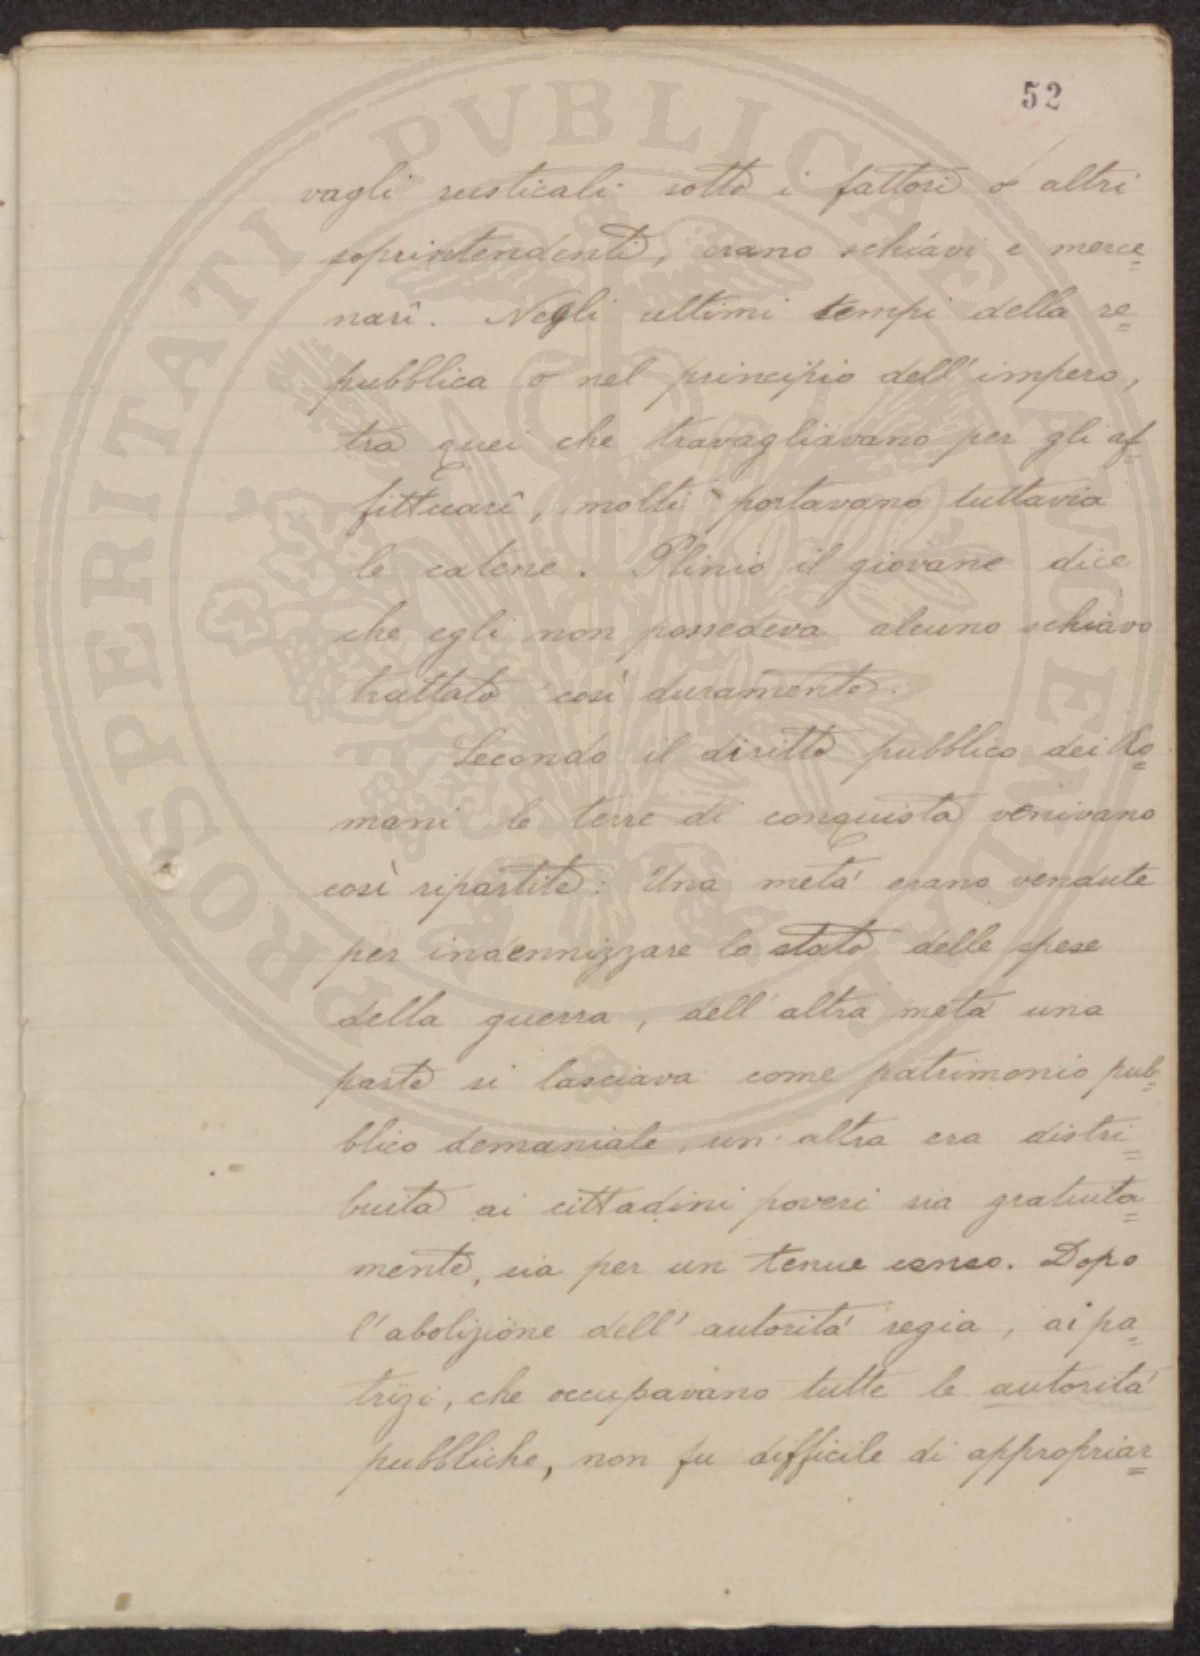 52
vagli rusticali sotto i fattori o altri
soprintendenti, erano schiavi e merce=
narî. Negli ultimi tempi della re=
pubblica o nel principio dell'impero,
tra quei che travagliavano per gli af=
fittuarî, molti portavano tuttavia
le catene. Plinio il giovane dice
che egli non possedeva alcuno schiavo
trattato così duramente.
Secondo il diritto pubblico dei Ro=
mani le terre di conquista venivano
così ripartite: Una metá erano vendute
per indennizzare lo stato delle spese
della guerra, dell'altra metá una
parte si lasciava come patrimonio pub=
blico demaniale, un'altra era distri=
buita ai cittadini poveri sia gratuita=
mente, sia per un tenue censo. Dopo
l'abolizione dell'autoritá regia, ai pa=
trizi, che occupavano tutte le autoritá
pubbliche, non fu difficile di appropriar=
PROSPERITATI PVBLICAE AVGENDAE